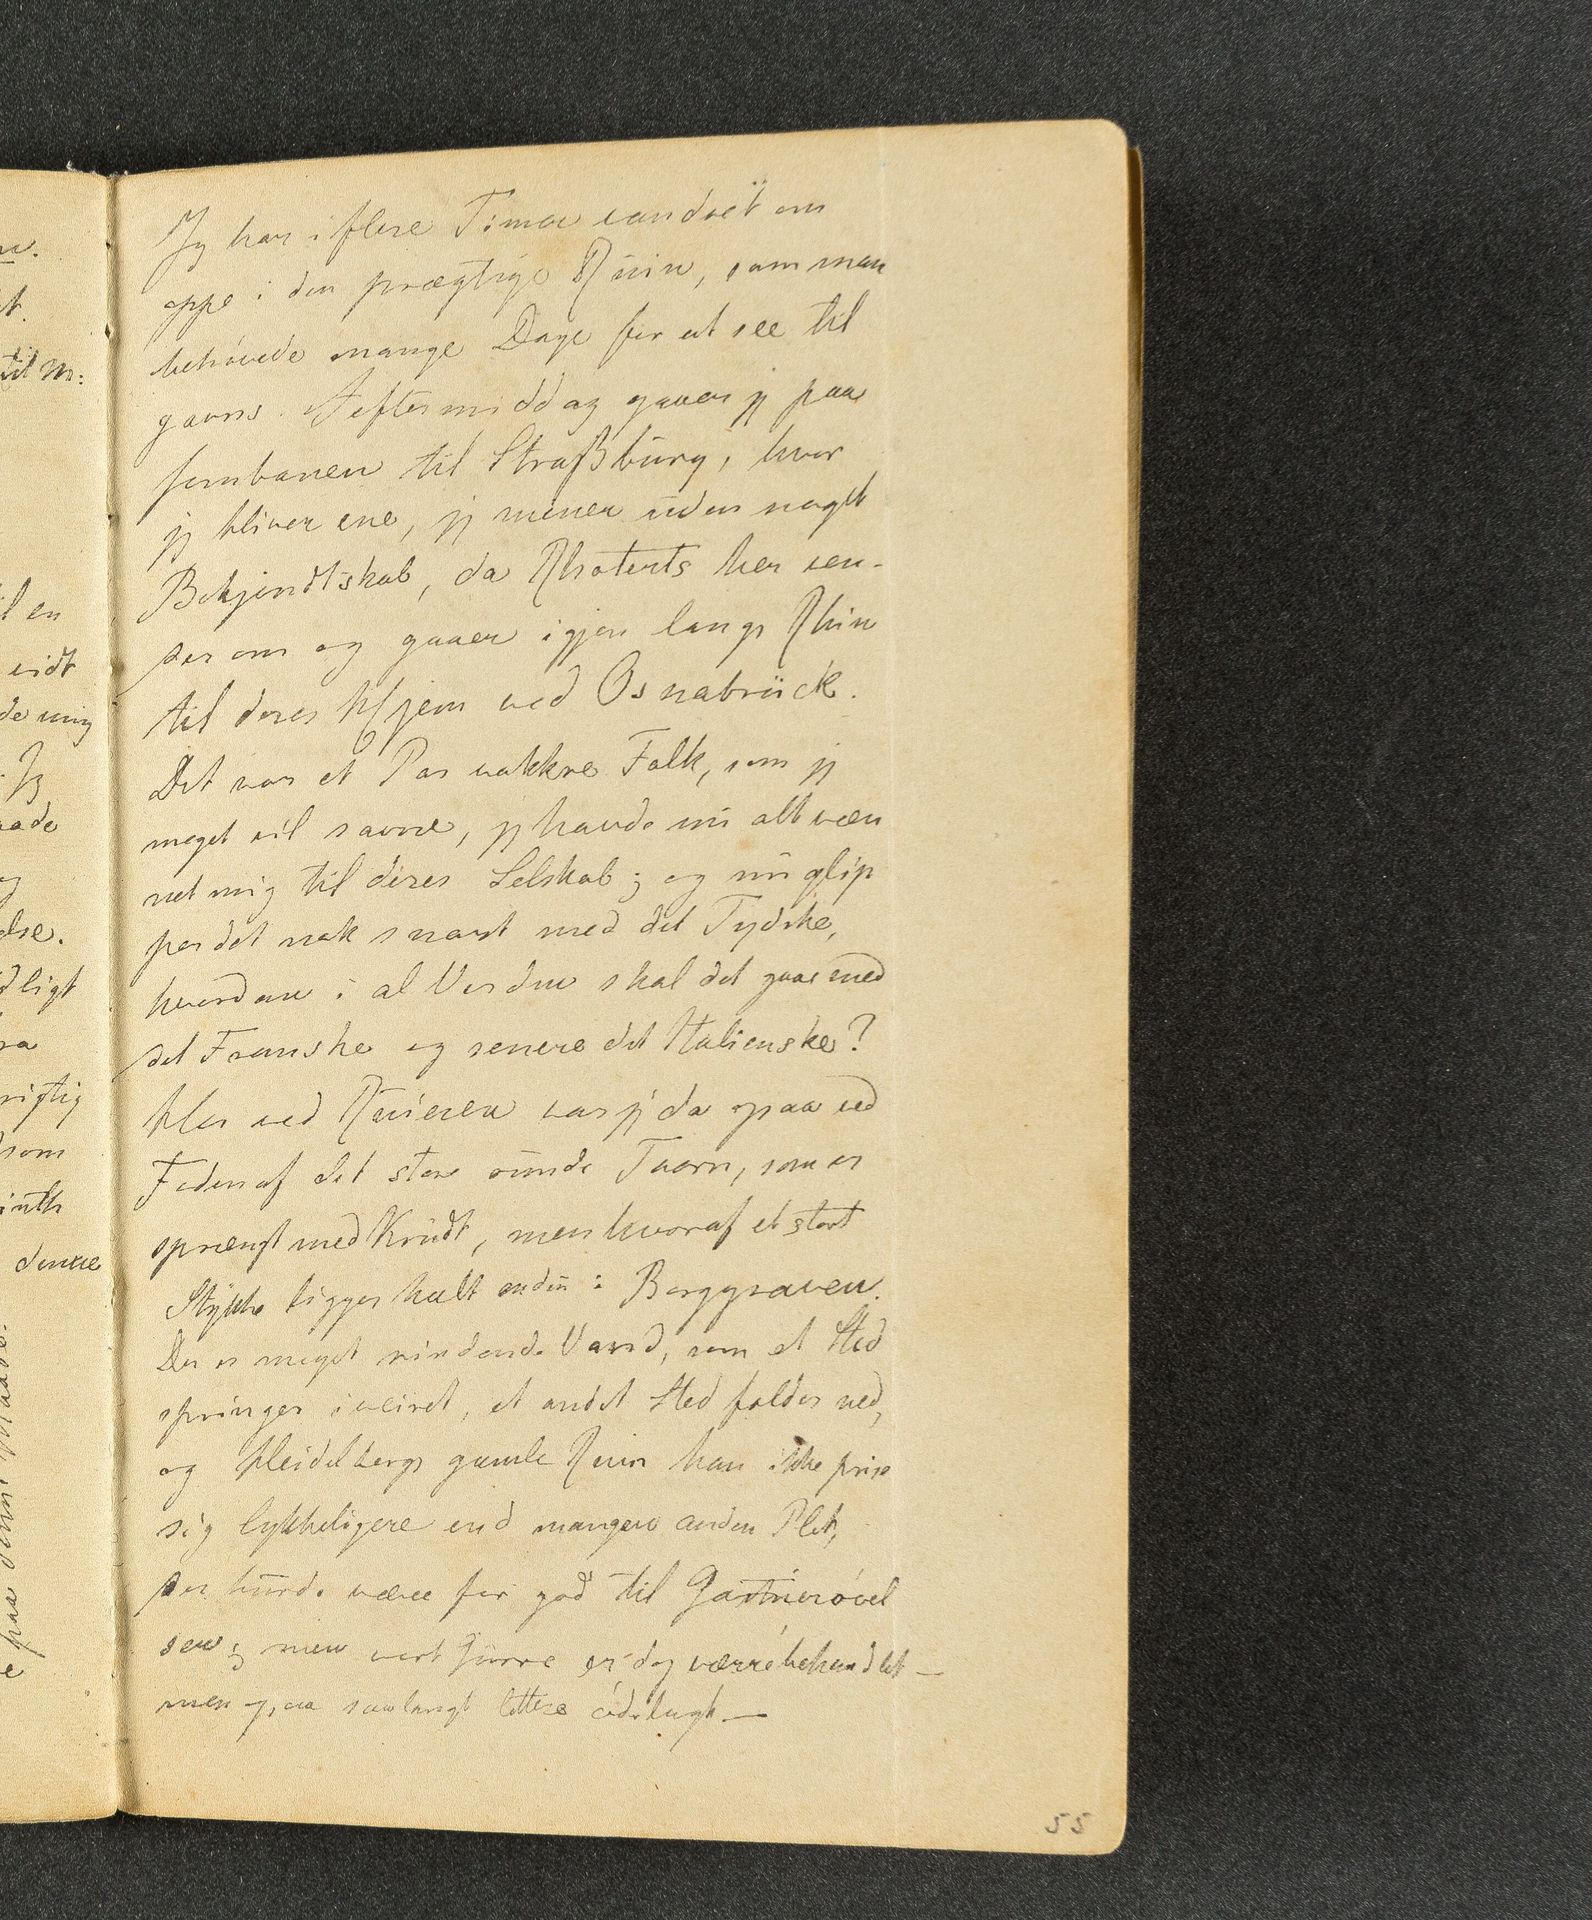 Jeg har i flere Timer vandret om
oppe i den prægtige Ruin, som man
behøvede mange Dage for at see til
gavns. I eftermiddag gaaer jeg paa
Jernbanen til Straßburg, hvor
jeg bliver ene, jeg mener uden noget
Bekjendtskab, da Rhoterts her ven-
der om og gaaer igjen langs Rhin
til deres Hjem ved Osnabrück.
Det var et Par vakkre Folk, som jeg
meget vil savne, jeg havde nu alt væn
net mig til deres Selskab; og nu glip
per det nok snart med det Tydske,
hvordan i al Verden skal det gaae med
det Franske og senere det Italienske?
Her ved Ruinen var jeg da ogsaa ved
Foden af det store runde Taarn, som er
sprængt med Krudt, men hvoraf et stort
Stykke ligger heelt neden i Borggraven.
Der er meget rindende Vand, som et Sted
springer i veiret, et andet Sted falder ned,
og Heidelbergs gamle Ruin kan ikke prise
sig lykkeligere end mangen anden Plet,
der burde være for god til Gartnerøvel
ser; men vort Gurre er dog værre behandlet —
men ogsaa saalangt lettere ødelagt. —
55
n.
t.
til m:
l en
vidt
de mig
. Jeg
aade
g
lse.
dligt
ra
rigtig
som
inth
denne
paa denne Maade.
e